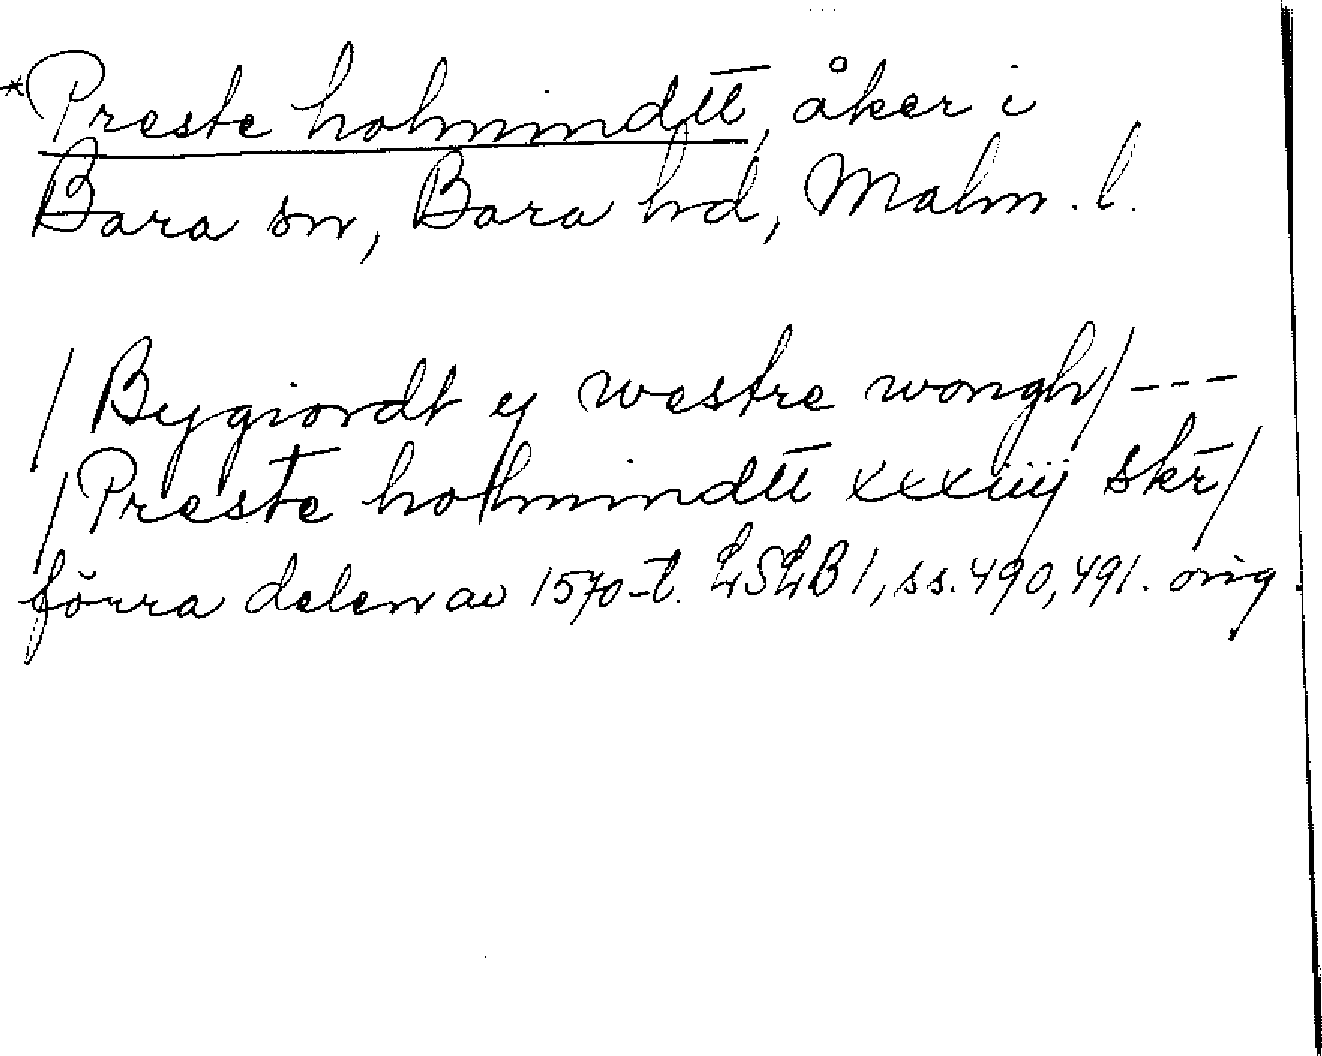 *Preste holmindtt, åker i
Bara sn, Bara hd, Malm. l.
/Bygiordt y westre wongh/ ---
/Preste holmindtt xxxiiij skr/
förra delen av 1570-t. LSLB 1, ss. 490, 491. orig.